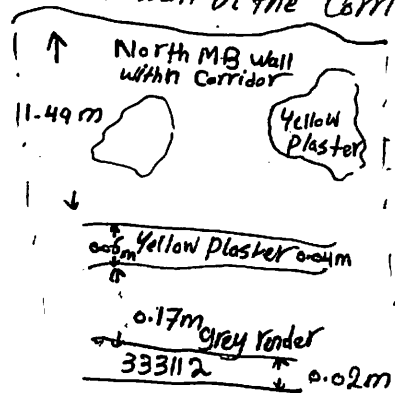 wall of the Corri
North MB wall
within Corridor
11.49m
Yellow
Plaster
0.06m Yellow Plaster 0.04m
0.17m grey render
333112
0.02m